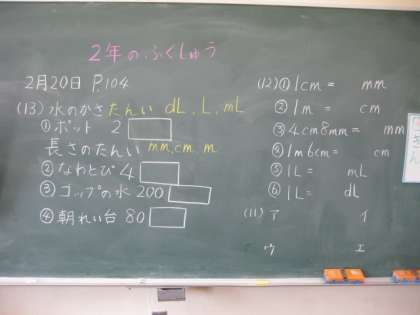 2年のふくしゅう
2月20日 P.104
(13) 水のかさ たんい dL, L, mL
① ポット 2
長さのたんい mm, cm m
② なわとび 4
③ コップの水 200
④ 朝れい台 80
(12) ① 1cm = mm
② 1m = cm
③ 4cm8mm = mm
④ 1m6cm = cm
⑤ 1L = mL
⑥ 1L = dL
(11) ア イ
ウ エ